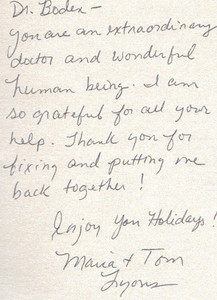 Dr. Boder –
You are an extraordinary
doctor and wonderful
human being. I am
so grateful for all your
help. Thank you for
fixing and putting me
back together!
Enjoy You Holidays!
Maria + Tom
Lyons